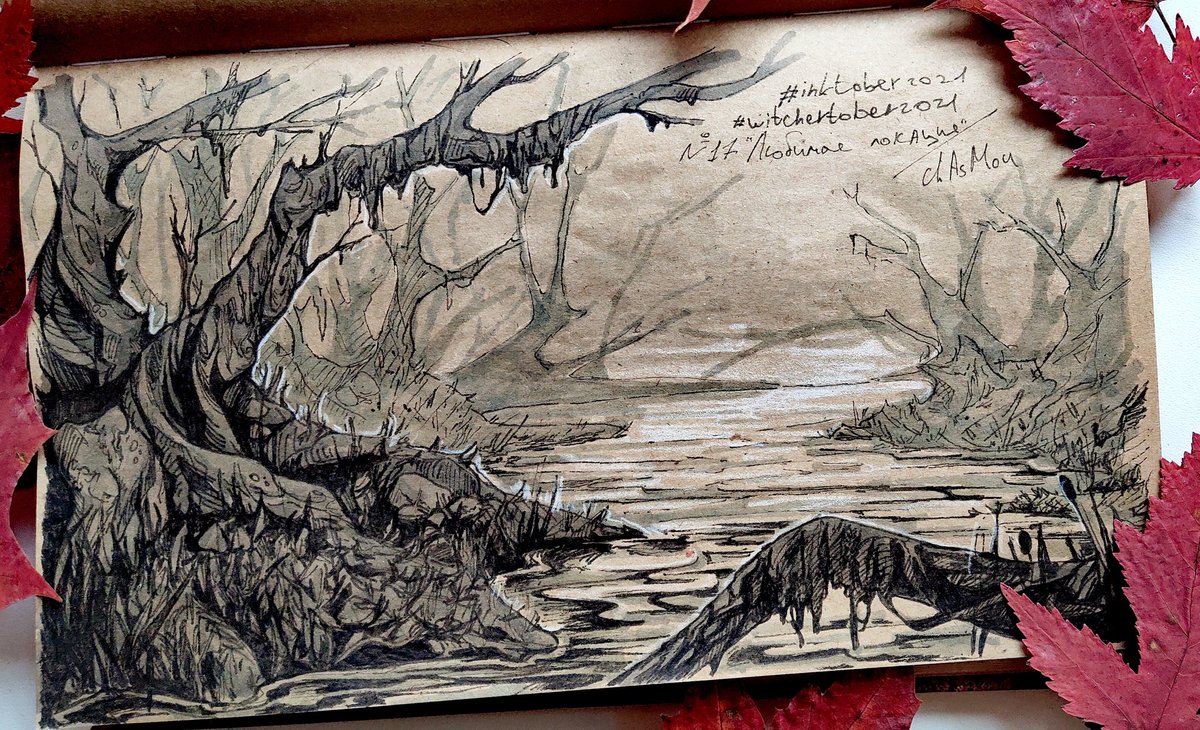 #inktober2021
#witchertober2021
№17 "Любимае локация"
chAsMou